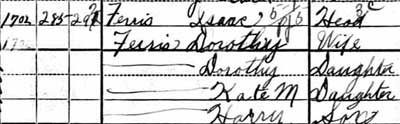 1702 285 297 Ferris Isaac Head
Ferris Dorothy Wife
Dorothy Daughter
Kate M Daughter
Harry Son